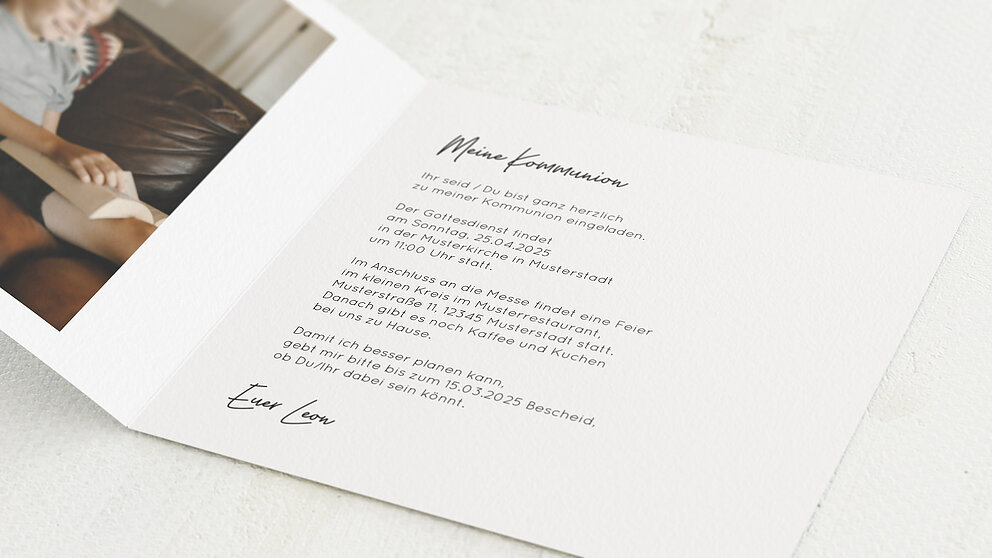 Meine Kommunion
Ihr seid / Du bist ganz herzlich
zu meiner Kommunion eingeladen.
Der Gottesdienst findet
am Sonntag, 25.04.2025
in der Musterkirche in Musterstadt
um 11:00 Uhr statt.
Im Anschluss an die Messe findet eine Feier
im kleinen Kreis im Musterrestaurant,
Musterstraße 11, 12345 Musterstadt statt.
Danach gibt es noch Kaffee und Kuchen
bei uns zu Hause.
Damit ich besser planen kann,
gebt mir bitte bis zum 15.03.2025 Bescheid,
ob Du/Ihr dabei sein könnt.
Euer Leon